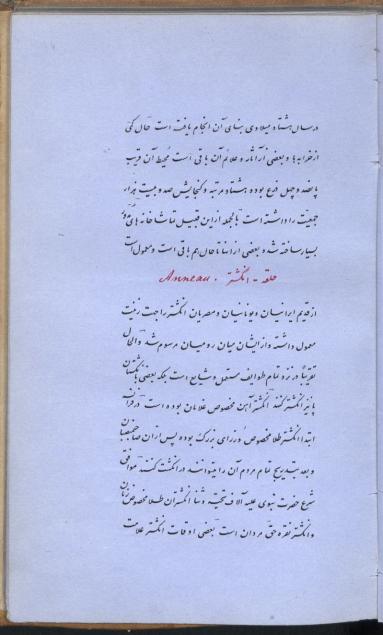 در سال هشتاد میلادی بنای آن انجام یافت است حال کمی
از خرابه‌ها و بعضی از آثار و علائم آن باقی است محیط آن قریب
پانصد و چهل ذرع بوده هشتاد مرتبه و گنجایش صد و بیست هزار
جمعیت را داشته است بالجمله از این قبیل تماشاخانه‌های
بسیار ساخته شده بعضی از آنها تا حال هم باقی است و معمول است
حلقه - انگشتر . Anneau
از قدیم ایرانیان و یونانیان و مصریان انگشتر را جهت زینت
معمول داشته و از ایشان میان رومیان مرسوم شد و الحال
تقریباً در نزد تمام طوایف مستعمل و شایع است بلکه بعضی بانگشتان
پا نیز انگشتر کنند انگشتر آهن مخصوص غلامان بوده است در فرانسه
ابتدا انگشتر طلا مخصوص وزرای بزرگ بوده پس از آن صاحبمنصبان
و بعد بتدریج تمام مردم آن را میتوانند در انگشت کنند موافق
شرع حضرت نبوی علیه آلاف تحیة و ثنا انگشتر آن طلا مخصوص زنان
و انگشتر نقره حق مردان است بعضی اوقات انگشتر علامت